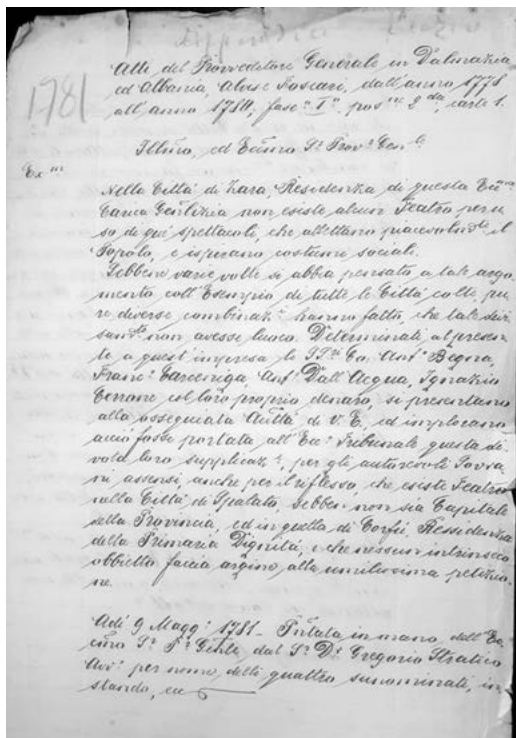 1781
Atti del Provveditore Generale in Dalmazia
ed Albania, Alvise Foscari, dall'anno 1778
all'anno 1780, fasc.º I.º, pos.ne 2.da, carte 1.
Illmo, ed Eccmo Sr. Provr. Genle
Ex.m
Nella Città di Zara, Residenza di questa
Carica non esiste alcun Teatro per u-
so di que' spettacoli, che allettano il
Popolo, e ispirano costumi sociali.
Sebben varie volte si abba pensato a tale argo-
mento coll'Esempio di tutte le Città colte, pu-
re diverse combinaz.i hanno fatto, che tale
non avesse luoco. Determinati al presen-
te a quest'impresa li Co. Ant.º Begna,
Franc.º Carceniga, Ant.º Dall'Acqua, Ignazio
col loro proprio denaro, si presentano
alla ossequiata di V. E. ed implorano
acciò fosse portata all'Ecc.º Tribunale questa di-
vota loro supplicaz.e, per gli autorevoli Sovra-
ni assensi, anche per il riflesso, che esiste Teatro
nella Città di Spalato, sebben non sia Capitale
della Provincia, ed in quella di Corfù, Ressidenza
della Primaria Dignità, e che nessun intrinseco
obbietto faccia argine alla umilissima petizio-
ne.
Adì 9 Magg.º 1781 - in mano dell'Ec-
cmo Sr. dal Sr. Dr. Gregorio Stratico
Avv.º per nome delli quattro sunominati, in-
stando, ec